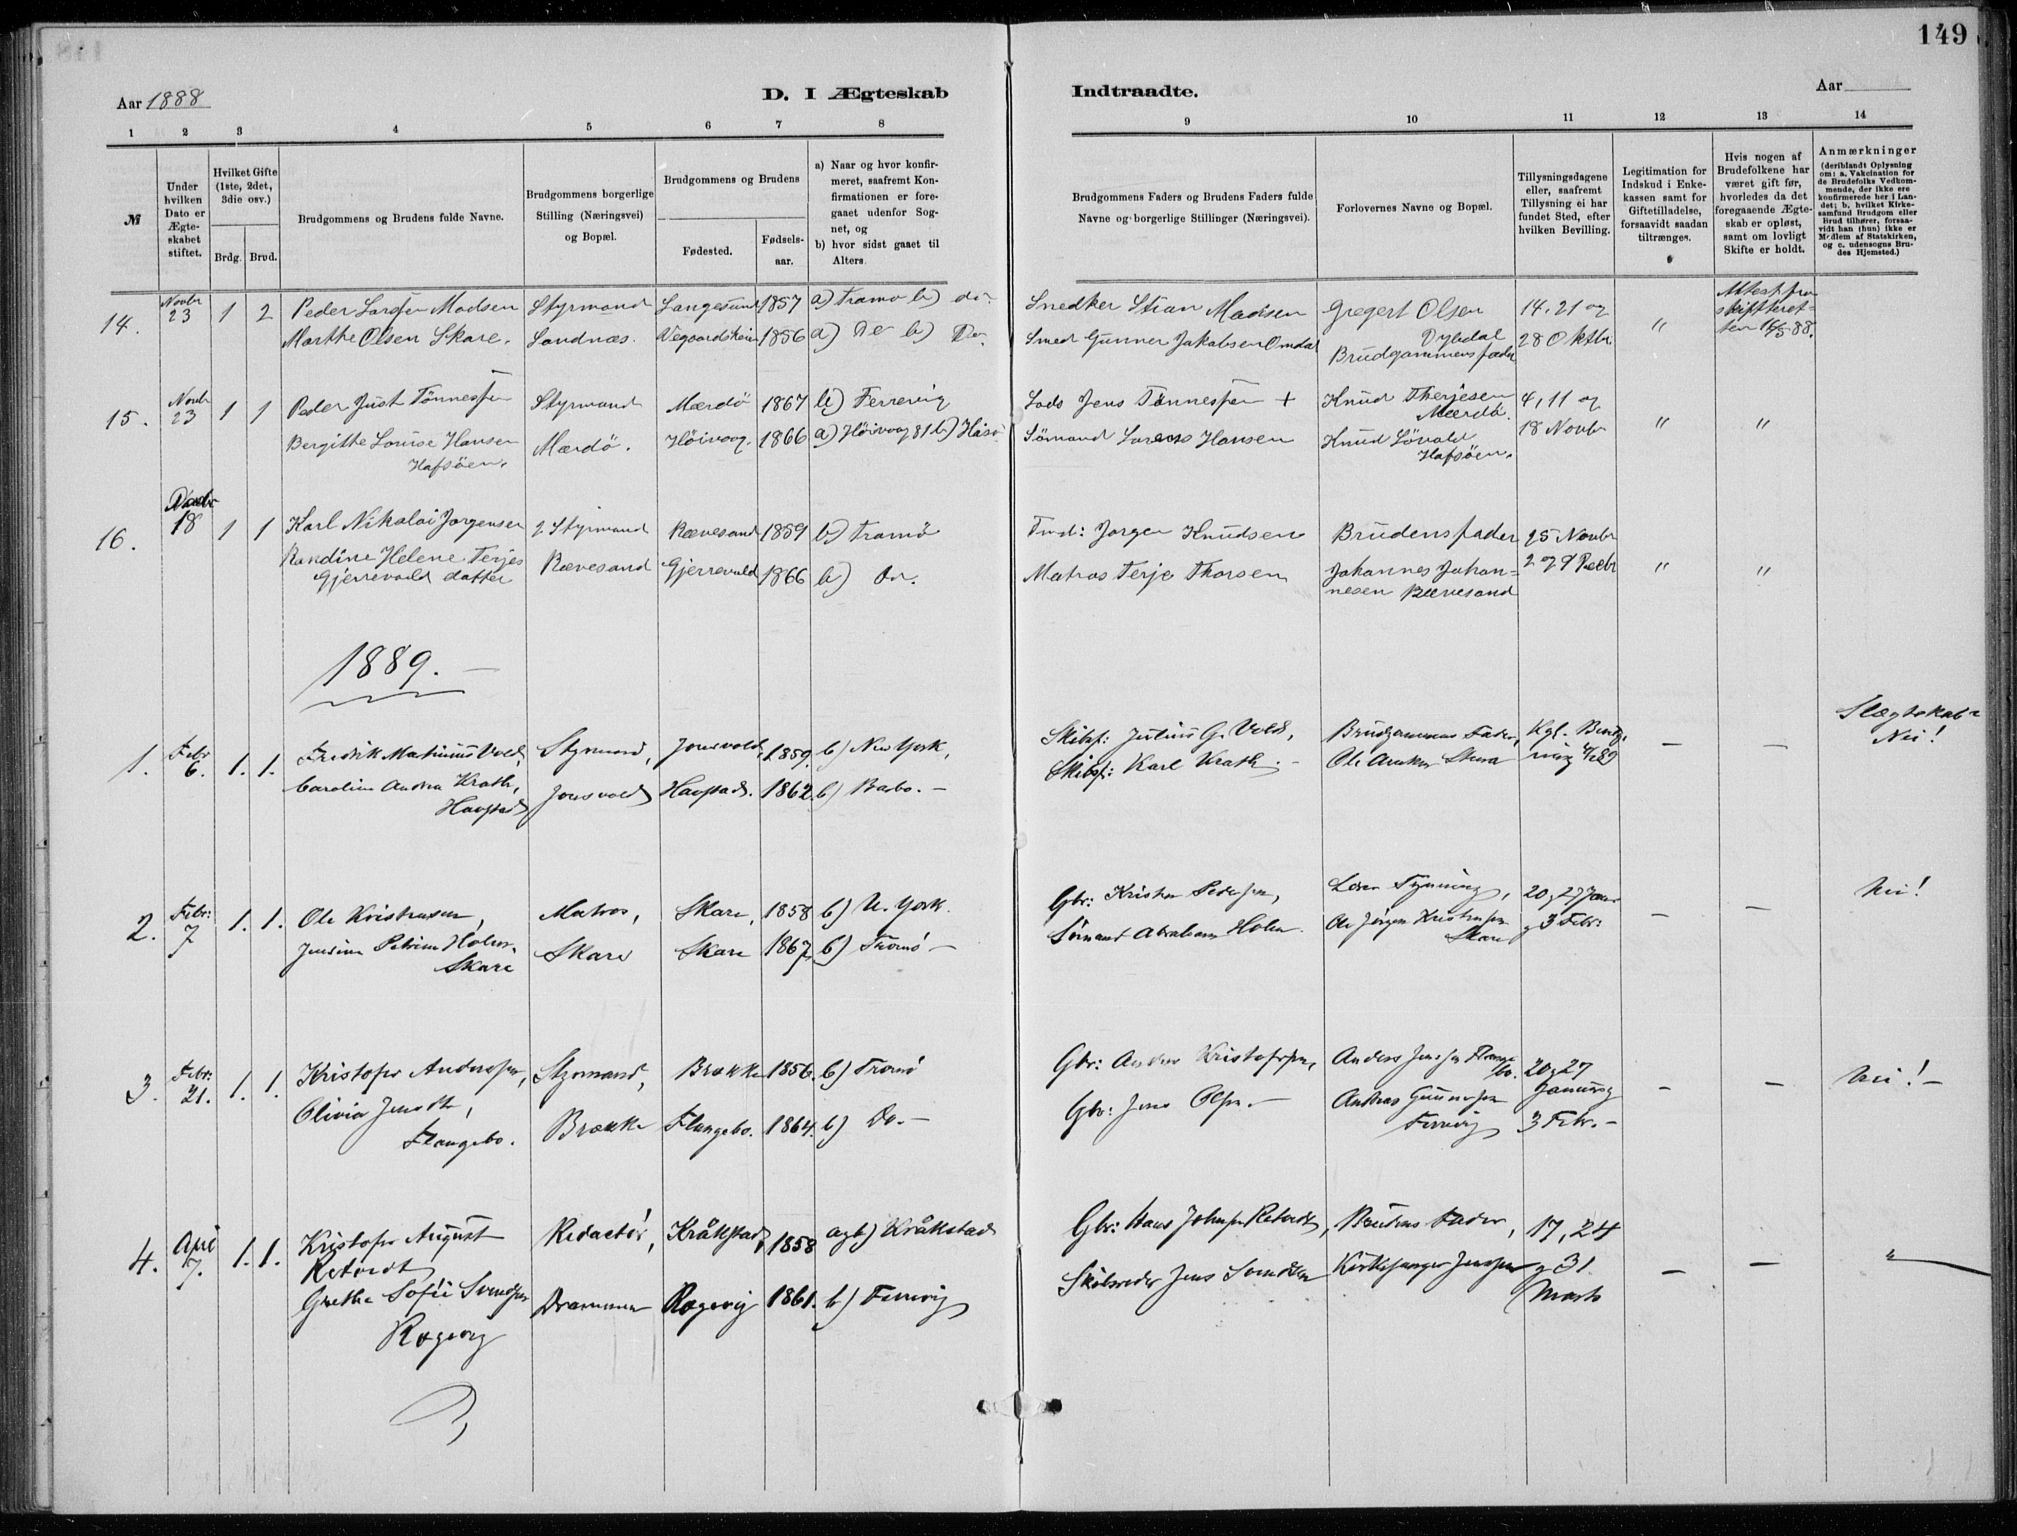 149
Aar 1888
D. I Ægteskab
Indtraadte.
Aar
1 2 3 4 5 6 7 8 9 10 11 12 13 14
№
Under hvilken Dato er Ægteskabet stiftet.
Hvilket Gifte (1ste, 2det, 3die osv.)
Brdg. Brud.
Brudgommens og Brudens fulde Navne.
Brudgommens borgerlige Stilling (Næringsvei) og Bopæl.
Brudgommens og Brudens
Fødested.
Fødsels-aar.
a) Naar og hvor konfir-
meret, saafremt Kon-
firmationen er fore-
gaaet udenfor Sog-
net, og
b) hvor sidst gaaet til
Alters.
Brudgommens Faders og Brudens Faders fulde
Navne og borgerlige Stillinger (Næringsvei).
Forlovernes Navne og Bopæl.
Tillysningsdagene
eller, saafremt
Tillysning ei har
fundet Sted, efter
hvilken Bevilling.
Legitimation for
Indskud i Enke-
kassen samt for
Giftetilladelse,
forsaavidt saadan
tiltrænges.
Hvis nogen af
Brudefolkene har
været gift før,
hvorledes da det
foregaaende Ægte-
skab er opløst,
samt om lovligt
Skifte er holdt.
Anmærkninger
(deriblandt Oplysning
om: a. Vakcination for
de Brudefolks Vedkom-
mende, der ikke ere
konfirmerede her i Lan-
det; b. hvilket Kirke-
samfund Brudgom eller
Brud tilhører, forsaa-
vidt han (hun) ikke er
Medlem af Statskirken,
og c. udensogns Bru-
des Hjemsted.)
14. Novbr 23 1 2 Peder Larssen Madsen Styrmand Langesund 1857 a) Tromø b) do. Snedker Stian Madsen Gregert Olsen 14, 21 og
Marthe Olsen Skare. Sandnæs. Vegaardsheien 1856 a) Do b) Do. Smed Gunner Jakobsen Omdal Dybdal 28 Oktbr. " Attest fra
Brudgommens fader skifteret-
ten 16/5 88.
15. Novbr 23 1 1 Peder Just Tönnessen Styrmand Mærdö 1867 b) Ferrevig Lods Jens Tönnessen + Knud Therjesen 4, 11 og
Mærdö.
Bergithe Louise Hansen Mærdö. Höivaag. 1866 a) Höivaag 81 b) Hisö Sömand Larens Hansen Knud Lövold 18 Novbr " "
Hafsöen. Hafsöen.
16. 18 1 1 Karl Nikolai Jorgensen 2 Styrmand Rævesand 1859 b) Tromö Jorgen Knudsen Brudens fader 25 Novbr
Randine Helene Terjes Rævesand Gjerrevold 1866 b) Do. Matros Terje Thorsen Johannes Johan- 2 og 9 Decbr " "
Gjerrevold datter nesen Rævesand
1889.
Slægtskab-
1. Febr 6. 1. 1. Fredrik Mathinius Vold, Styrmand, Jonsvold, 1859. b) New York, Skibsf: Julius G. Vold, Brudgommens Fader, Kgl. Bevil- Nei!
Caroline Andrea Krath, Jonsvold Havstad. 1862. b) Barbo. – Skibsf: Karl Krath. – Ole – –
Havstad
2. Febr: 7 1. 1. Ole Kristensen, Matros, Skare, 1858 b) N. York. Gbr: Kristen Pedersen, 20 og 27 Janr Nei!
Jensine Petrine Holm Skare Skare 1867, b) Tromö – Sømand Abraham Holm. Ole Jörgen Kristensen og 3 Febr: – –
Skare Skare
3. Febr: 21. 1. 1. Kristofer Andersen, Styrmand, Brække 1856. b) Tromö Gbr: Anders Kristofersen, Anders Jenssen Flange- 20 og 27 Nei! –
bo.
Olivia Jensdtr, Brække Flangebo. 1864. b) Do. – Gbr: Jens Olsen. – Andreas Gunnersen Januar og – –
Flangebo. Ferrevig 3 Febr. –
4. April 7. 1. 1. Kristofer August Redactör, Kråkstad, 1858 a og b) Kråkstad Gbr: Hans Johnsen Retvedt, Brudens Fader, 17, 24
Retvedt
Grethe Sofie Svendsen Drammen Rægevig 1861. b) Ferrevig Skibsreder Jens Svendsen Kirkesanger Jenssen og 31. – – "
Rægevig Marts